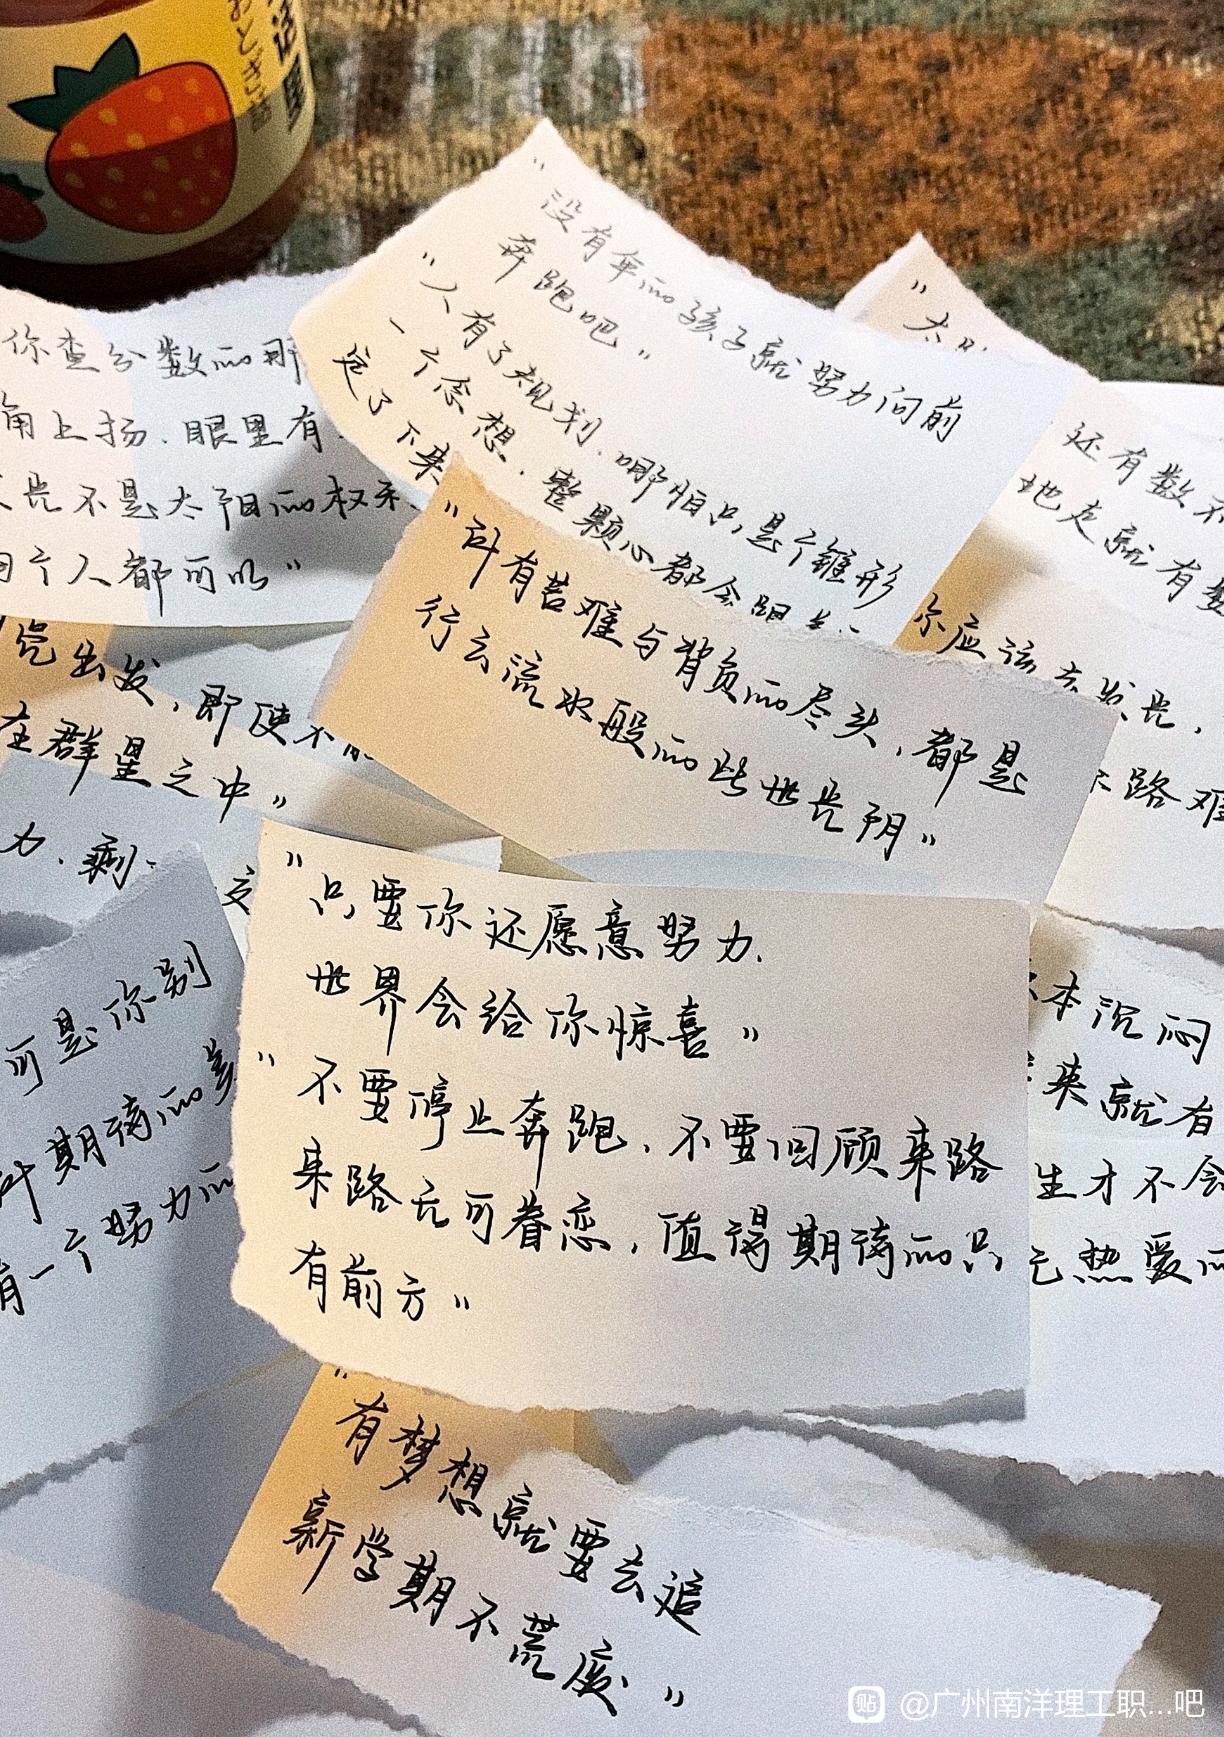 おとぎ話
"没有伞的孩子就努力向前
奔跑吧"
"人有了规划.哪怕只是个雏形
一个念想.整颗心都会跟着
定了下来
你查分数的那
角上扬.眼里有
光不是太阳的权利
每个人都可以"
还有数不
地走就有
"所有苦难与背负的尽头,都是
行云流水般的此世光阴"
你应该去发光,
路难
亮出发,即使不能
在群星之中"
力.剩
"只要你还愿意努力.
世界会给你惊喜"
"不要停止奔跑.不要回顾来路
来路无可眷恋,值得期待的只
有前方"
可是你别
期待的
有一个努力的
本沉闷
来就有
生才不会
无热爱而
"有梦想就要去追
新学期不荒废"
贴 @广州南洋理工职...吧